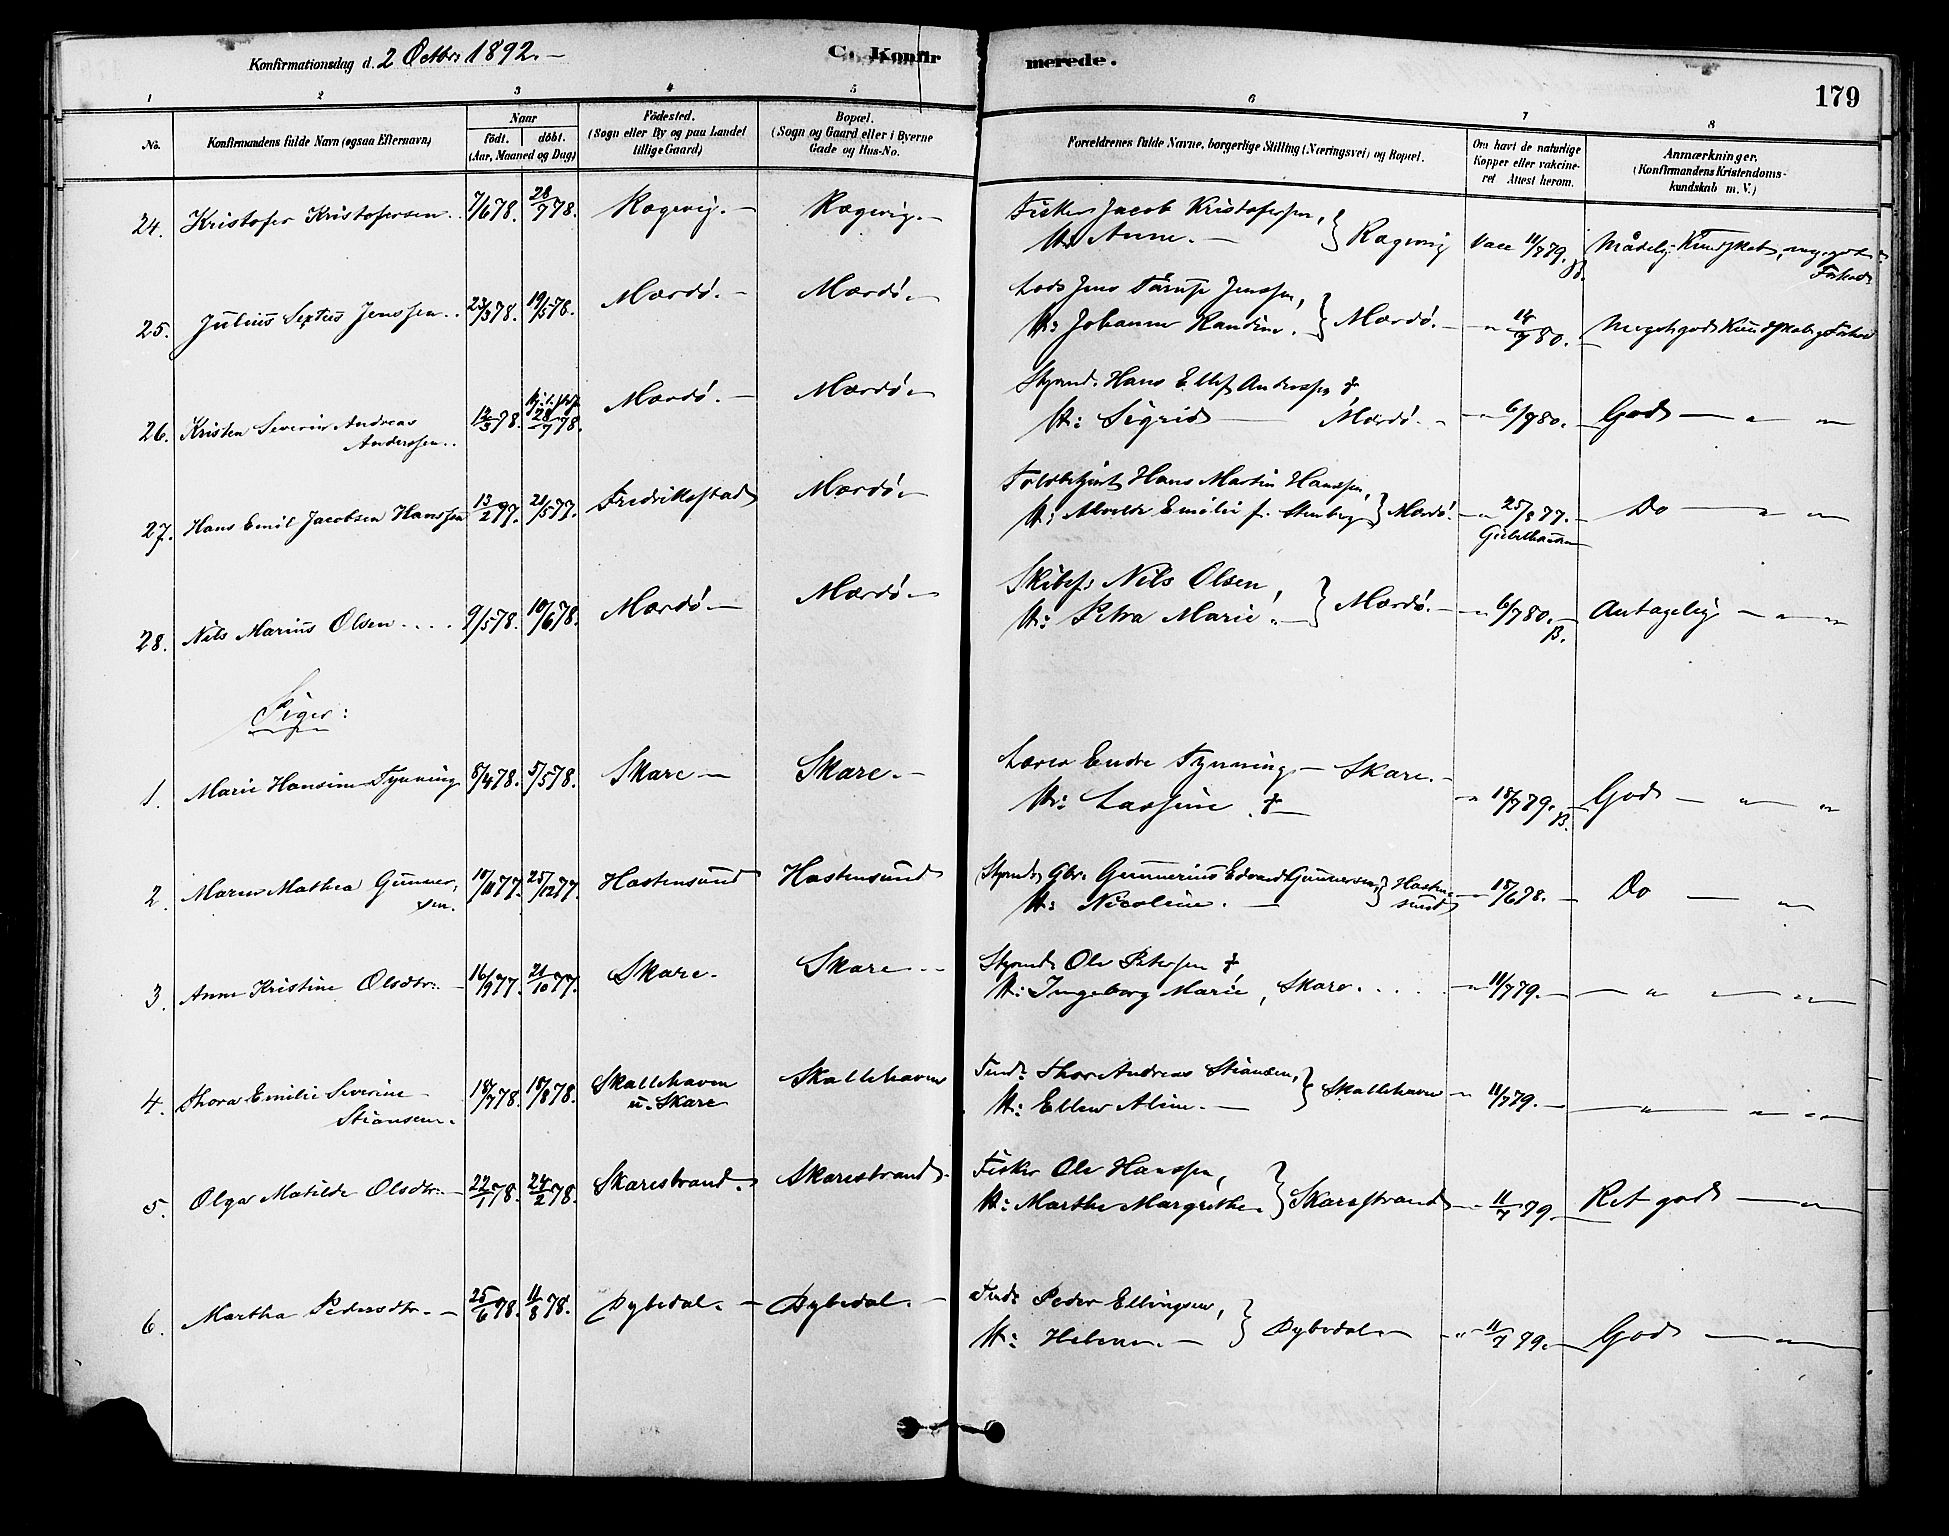 Konfirmationsdag d. 2 Octbr: 1892. — C. Konfirmerede.
179
1 2 3 4 5 6 7 8
No. Konfirmandens fulde Navn (ogsaa Efternavn) Naar født. døbt. (Aar, Maaned og Dag) Födested. (Sogn eller By og paa Landet tillige Gaard) Bopæl. (Sogn og Gaard eller i Byerne Gade og Hus-No. Forældrenes fulde Navne, borgerlige Stilling (Næringsvei) og Bopæl. Om havt de naturlige Kopper eller vakcineret Attest herom. Anmærkninger. (Konfirmandens Kristendomskundskab m. V.)
24. Kristofer Kristofersen. 7/6 78. 28/7 78. Ragevig. — Ragevig. — Fisker Jacob Kristofersen, H: Anne. — } Ragevig Vacc 11/7 79. Mådelig Kundskab, meget god Forhold
25. Julius Sextus Jenssen. 23/3 78. 19/5 78. Mærdø. — Mærdø — Lods Jens Tårup Jenssen, H: Johanne Randine. } Mærdø. — " 14/7 80. Meget god Kundskab og Forhold
26. Kristen Severin Andreas Anderssen. 12/3 78. 28/7 78. Mærdø. — Mærdø — Styrmd. Hans Ellef Anderssen † H: Sigrid — Mærdø. — " 6/7 80. God — " "
27. Hans Emil Jacobsen Hanssen 13/2 77. 21/5 77. Fredrikstad Mærdø — Toldbetjent Hans Martin Hanssen, H: Alvilde Emilie f. Stenberg } Mærdø. — " 25/8 77. Do — " "
28. Nils Marius Olsen.... 9/5 78. 10/6 78. Mærdø — Mærdø — Skibsf: Nils Olsen, H: Petra Marie. } Mærdø. — " 6/7 80. Antagelig — " "
Piger:
1. Marie Hansine Tynning 8/4 78. 5/5 78. Skare — Skare. — Lærer Endre Tynning — Skare. — H: Lassine † — " 18/7 79. God — " "
2. Maren Mathea Gunnersen. 10/11 77. 25/12 77. Hastensund Hastensund Styrmd. Gbr. Gunnerius Edvard Gunnersen, H: Nicoline. — } Hastensund " 18/6 78. — Do — "
3. Anne Kristine Olsdtr. — 16/9 77. 21/10 77. Skare. Skare. — Styrmd. Ole Petersen † H: Ingeborg Marie, Skare.... " 11/7 79. — " " "
4. Thora Emilie Severine Stiansen. 18/7 78. 18/8 78. Skallehaven u. Skare Skallehaven Tmd: Thor Andreas Stiansen, H: Ellen Aline. — } Skallehaven " 11/7 79. — " " "
5. Olga Matilde Olsdtr. — 22/1 78. 24/2 78. Skarestrand. Skarestrand. Fisker Ole Hanssen, H: Marthe Margrethe. } Skarestrand " 11/7 79. Ret god — "
6. Martha Pedersdtr. — 25/6 78. 11/8 78. Dybedal. — Dybedal. — Tmd: Peder Ellingsen, H: Helene. — } Dybedal. — " 11/7 79. — God — "